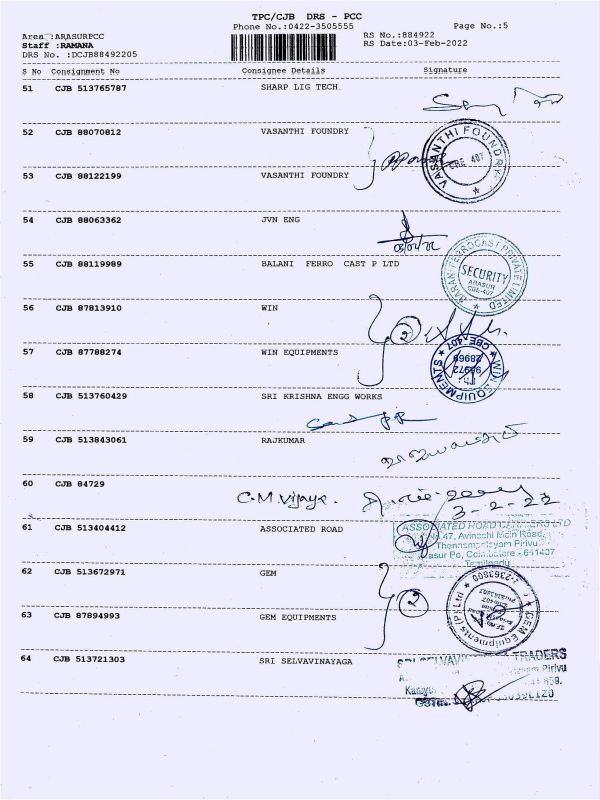 TPC/CJB DRS - PCC
Phone No.:0422-3505555
Page No.:5
Area :ARASURPCC
RS No.:884922
Staff :RAMANA
RS Date:03-Feb-2022
DRS No. :DCJB88492205
S No Consignment No Consignee Details Signature
51 CJB 513765787 SHARP LIG TECH
52 CJB 88070812 VASANTHI FOUNDRY
VASANTHI FOUNDRY
CBE 407
53 CJB 88122199 VASANTHI FOUNDRY
54 CJB 88063362 JVN ENG
55 CJB 88119989 BALANI FERRO CAST P LTD
FERROCAST PRIVATE LIMITED
SECURITY
ARASUR
CBE-407
56 CJB 87813910 WIN
2
57 CJB 87788274 WIN EQUIPMENTS
WIN EQUIPMENTS
CBE-407
58 CJB 513760429 SRI KRISHNA ENGG WORKS
59 CJB 513843061 RAJKUMAR
60 CJB 84729
C.M.Vijaya.
3-2-22
61 CJB 513404412 ASSOCIATED ROAD
ASSOCIATED ROAD CARRIERS LTD
47, Avinashi Main Road,
Pirivu
641407
Tamilnadu
62 CJB 513672971 GEM
2
63 CJB 87894993 GEM EQUIPMENTS
GEM Equipments (P) Ltd
64 CJB 513721303 SRI SELVAVINAYAGA
TRADERS
Pirivu